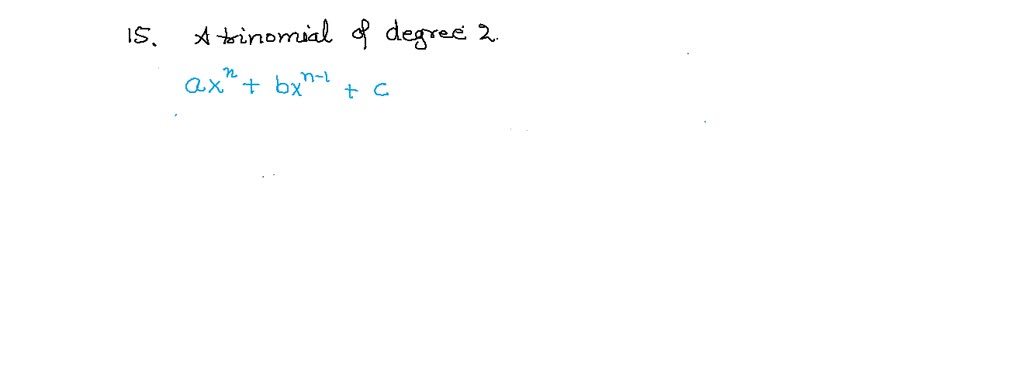 15. A trinomial of degree 2.
axⁿ + bxⁿ⁻¹ + c